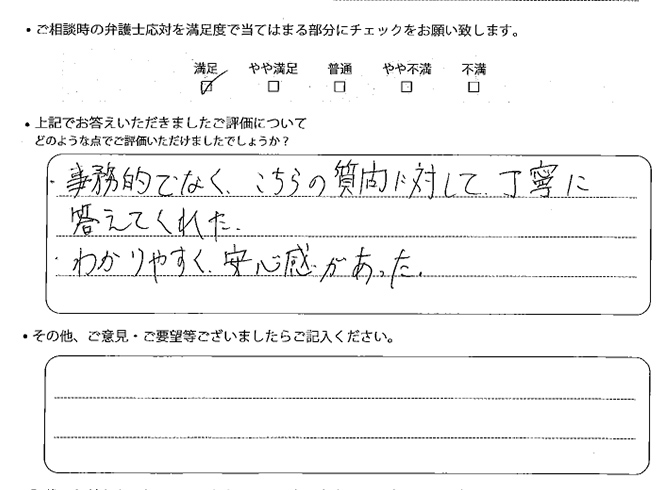 ・ご相談時の弁護士応対を満足度で当てはまる部分にチェックをお願い致します。
満足 やや満足 普通 やや不満 不満
・上記でお答えいただきましたご評価について
どのような点でご評価いただけましたでしょうか？
・事務的でなく、こちらの質問に対して、丁寧に
答えてくれた。
・わかりやすく、安心感があった。
・その他、ご意見・ご要望等ございましたらご記入ください。